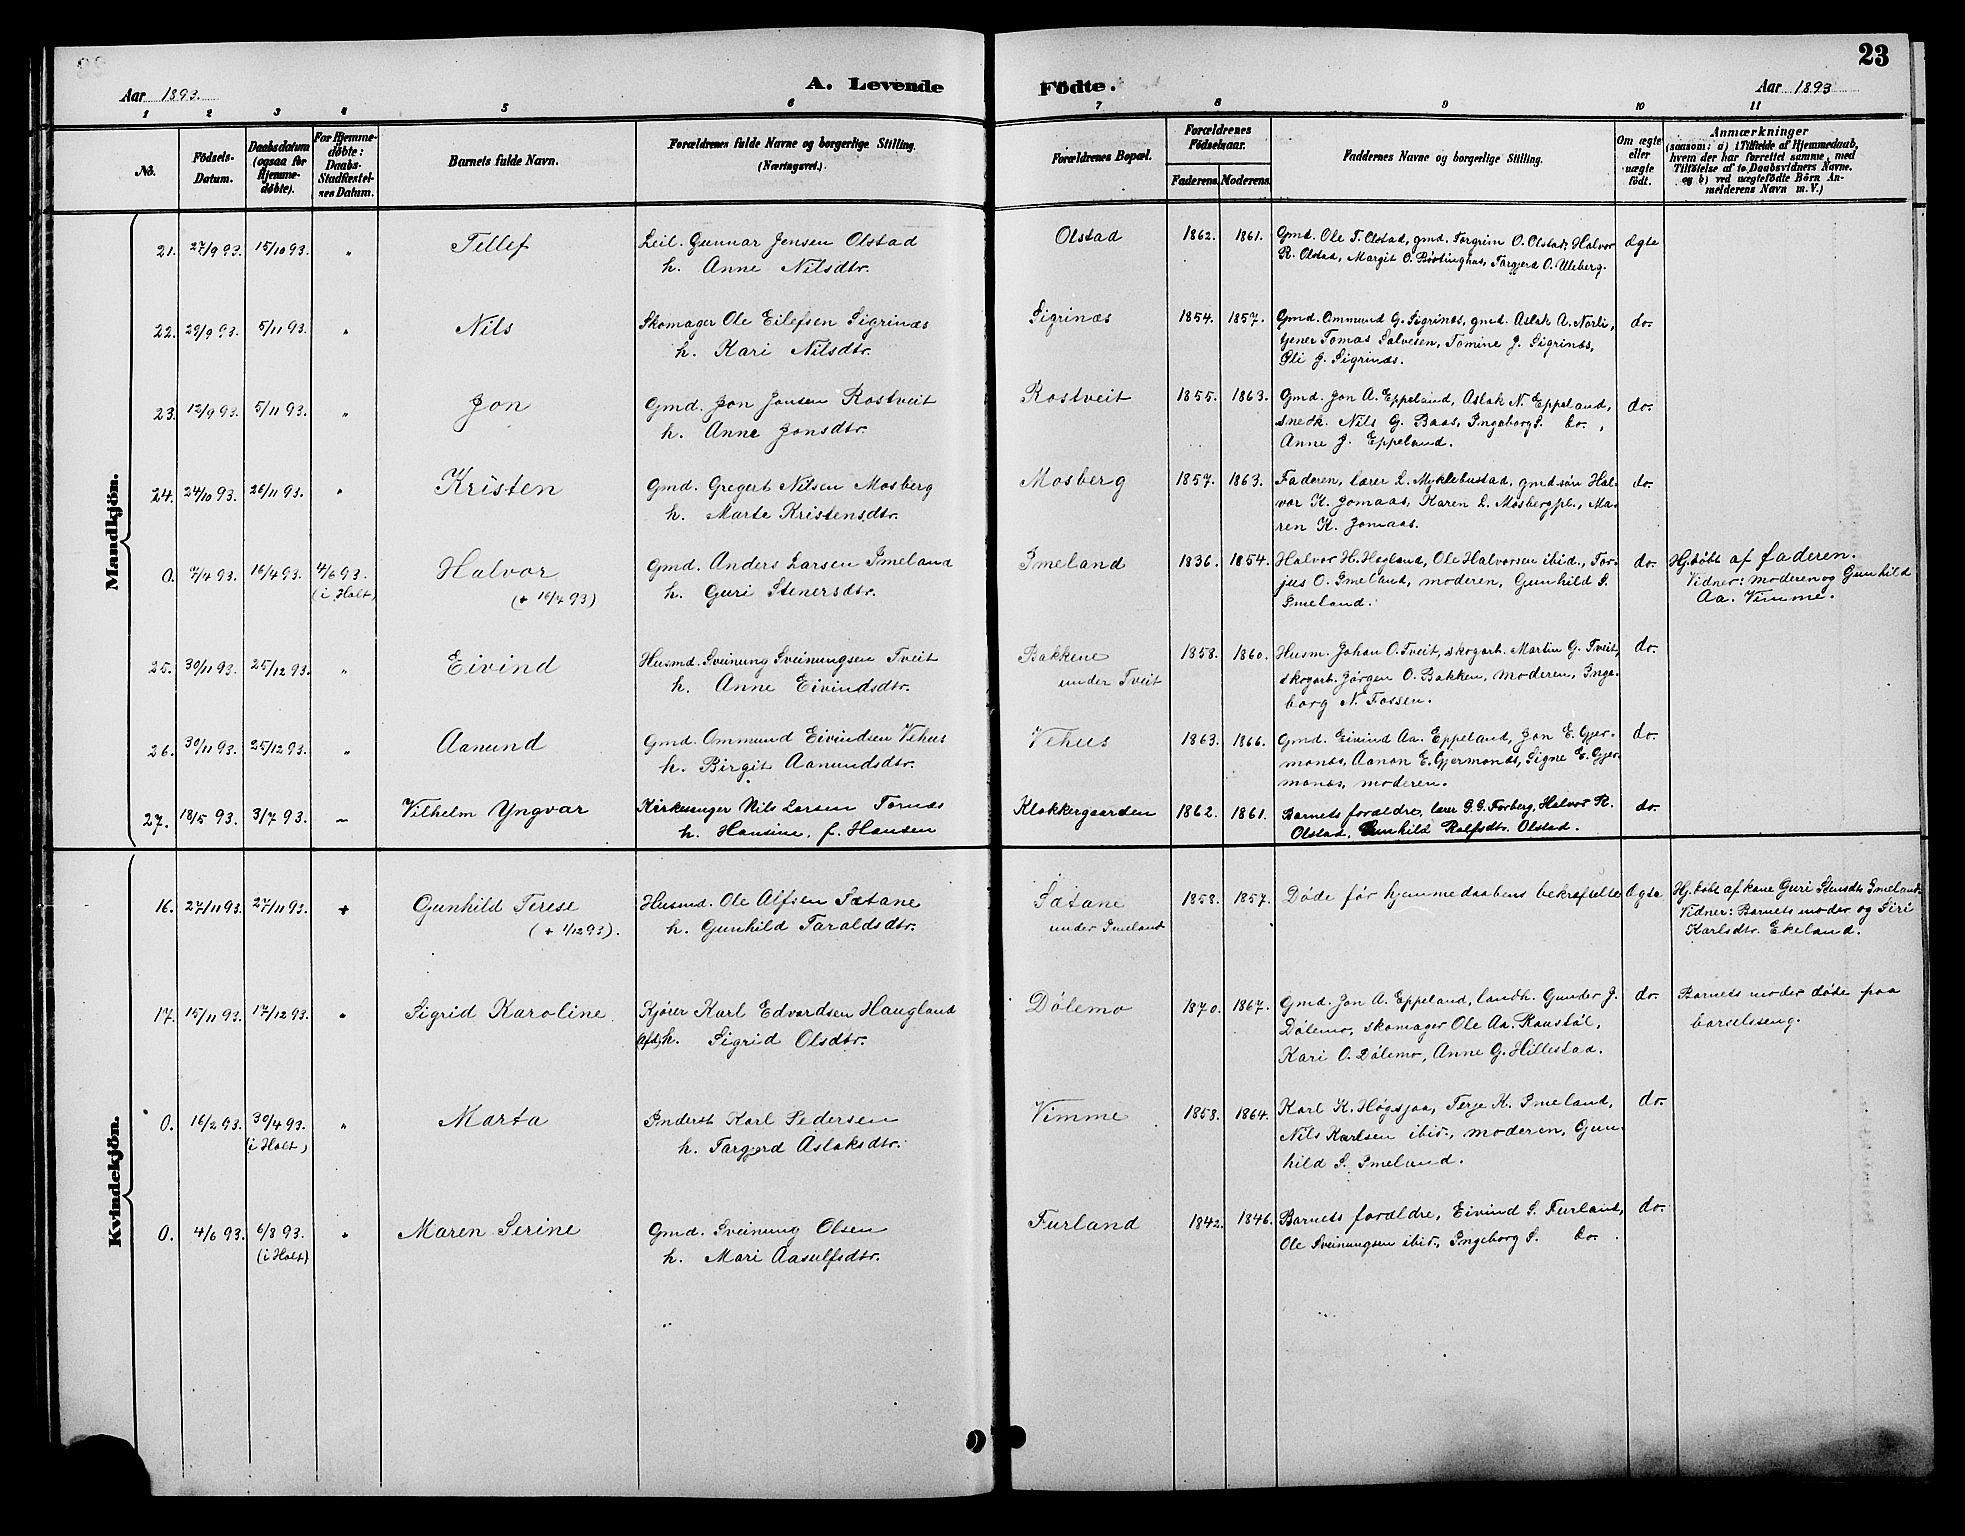 23
Aar 1893.
A. Levende Fødte.
Aar 1893
1 2 3 4 5 6 7 8 9 10 11
No.
Fødsels-Datum.
Daabsdatum (ogsaa for Hjemme-døbte).
For Hjemme-døbte: Daabs-Stadfæstel-sens Datum.
Barnets fulde Navn.
Forældrenes fulde Navne og borgerlige Stilling. (Næringsvei.)
Forældrenes Bopæl.
Forældrenes Fødselsaar.
Faderens. Moderens.
Faddernes Navne og borgerlige Stilling.
Om ægte eller uægte født.
Anmærkninger
(saasom: a) i Tilfælde af Hjemmedaab, hvem der har forrettet samme, med Tilføielse af to Daabsvidners Navne. og b) ved uægtefødte Børn An-melderens Navn m. V.)
Mandkjøn.
21. 27/9 93. 15/10 93. " Tellef Leil. Gunnar Jensen Olstad Olstad 1862. 1861. Gmd. Ole T. Olstad, gmd. Torgrim O. Olstad, Halvor ægte
h. Anne Nilsdtr. R. Olstad, Margit O. Bøstinghus, Torgjerd O. Uleberg.
22. 29/9 93. 5/11 93. " Nils Skomager Ole Eilefsen Sigrinæs Sigrinæs 1854. 1857. Gmd. Ommund G. Sigrinæs, gmd. Aslak A. Norli, do.
h. Kari Nilsdtr. tjener Tomas Salvesen, Tomine J. Sigrinæs,
Oli J. Sigrinæs.
23. 12/9 93. 5/11 93. " Jon Gmd. Jon Jonsen Rostveit Rostveit 1855. 1863. Gmd. Jon A. Eppeland, Aslak N. Eppeland, do.
h. Anne Jonsdtr. snedk. Nils G. Baas, Ingeborg S. do.,
Anne J. Eppeland.
24. 24/10 93. 26/11 93. " Kristen Gmd. Gregert Nilsen Mosberg Mosberg 1857. 1863. Faderen, lærer L. Myklebustad, gmdsøn Hal- do.
h. Marte Kristensdtr. vor K. Jomaas, Karen L. Mosbergpl., Ma-
ren K. Jomaas.
0. 7/4 93. 16/4 93. 4/6 93. Halvor Gmd. Anders Larsen Imeland Imeland 1836. 1854. Halvor H. Hegland, Ole Halvorsen ibid., Tor- do. Hj.døbt af faderen.
(i Holt) (+ 16/4 93) h. Guri Stenersdtr. jus O. Imeland, moderen, Gunhild S. Vidner: moderen og Gunhild
Imeland. Aa. Vimme.
25. 30/11 93. 25/12 93. " Eivind Husmd. Sveinung Sveinungsen Tveit Bakkene 1858. 1860. Husm. Johan O. Tveit, skogarb. Martin G. Tveit, do.
h. Anne Eivindsdtr. under Tveit skogarb. Jørgen O. Bakken, moderen, Inge-
borg N. Fossen.
26. 30/11 93. 25/12 93. " Aanund Gmd. Ommund Eivindsen Vehus Vehus 1863. 1866. Gmd. Eivind Aa. Eppeland, Jon E. Gjer- do.
h. Birgit Aanundsdtr. mones, Aanon E. Gjermones, Signe E. Gjer-
mones, moderen.
27. 18/5 93. 3/7 93. – Vilhelm Yngvar Kirkesanger Nils Larsen Tornæs Klokkergaarden 1862. 1861. Barnets forældre, lærer G. G. Forberg, Halvor R. do.
h. Hansine, f. Hansen Olstad, Gunhild Rolfsdtr. Olstad.
Kvindekjøn.
16. 27/11 93. 27/11 93. + Gunhild Terese Husmd. Ole Alfsen Sætane Sætane 1858. 1857. Døde før hjemmedaabens bekræftelse ægte Hj.døbt af kone Guri Stensdt. Imeland.
(+ 1/12 93). h. Gunhild Taraldsdtr. under Imeland Vidner: Barnets moder og Siri
Karlsdtr. Ekeland.
17. 15/11 93. 17/12 93. " Sigrid Karoline Kjører Karl Edvardsen Haugland Dölemo 1870. 1867. Gmd. Jon A. Eppeland, landh. Gunder J. do. Barnets moder døde paa
Afd. h. Sigrid Olsdtr. Dölemo, skomager Ole Aa. Raustöl, barselseng.
Kari O. Dölemo, Anne G. Hillestad.
0. 16/2 93. 30/4 93. " Marta Inderst Karl Pedersen Vimme 1858. 1864. Karl K. Høgsjaa, Terje K. Imeland, do.
(i Holt) h. Torgjerd Aslaksdtr. Nils Karlsen ibid., moderen, Gun-
hild S. Imeland.
0. 4/6 93. 6/8 93. " Maren Serine Gmd. Sveinung Olsen Furland 1842. 1846. Barnets forældre, Eivind S. Furland, do.
(i Holt) h. Mari Aasulfsdtr. Ole Sveinungsen ibid., Ingeborg S. do.